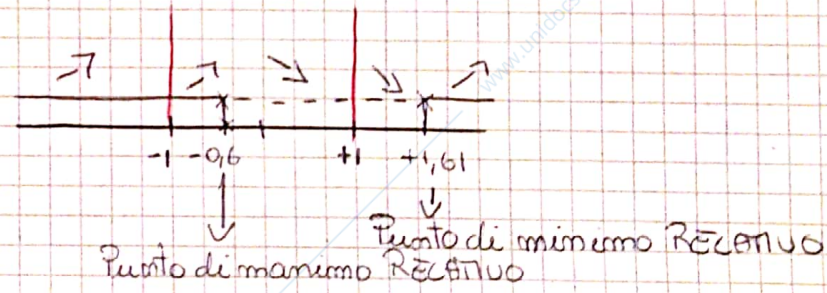 www.unidocs
-1 -0,6 +1 +1,61
Punto di minimo RELATIVO
Punto di massimo RELATIVO